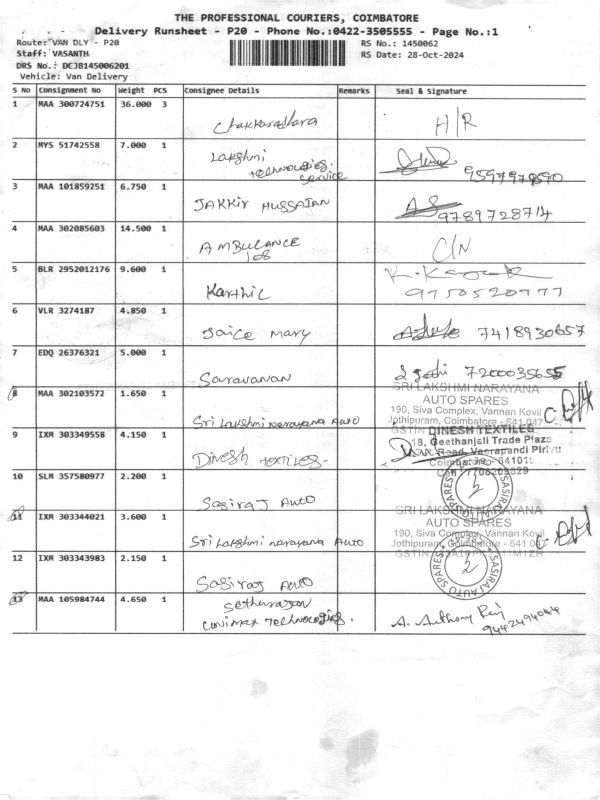 THE PROFESSIONAL COURIERS, COIMBATORE
Delivery Runsheet - P20 - Phone No.:0422-3505555 - Page No.:1
Route: VAN DLY - P20
RS No.: 1450062
Staff: VASANTH
RS Date: 28-Oct-2024
DRS No.: DCJB145006201
Vehicle: Van Delivery
S No Consignment No Weight PCS Consignee Details Remarks Seal & Signature
1 MAA 300724751 36.000 3
Chakkarathara H/R
2 MYS 51742558 7.000 1
Lakshmi
technologies.
service
3 MAA 101859251 6.750 1
JAKKIR HUSSAIAN 9789728714
4 MAA 302085603 14.500 1
AMBULANCE
108 C/N
5 BLR 2952012176 9.600 1
Karthic 9750520777
6 VLR 3274187 4.850 1
Jaice Mary 7418930657
7 EDQ 26376321 5.000 1
Saravanan
8 MAA 302103572 1.650 1
Sri Lakshmi narayana Auto
SRI LAKSHMI NARAYANA
AUTO SPARES
190, Siva Complex, Vannan Kovil
Jothipuram, Coimbatore - 641 047
GSTIN
9 IXM 303349558 4.150 1
Dinesh textiles-
DINESH TEXTILES
18, Geethanjali Trade Plaza
Road, Veerapandi Pirivu
Coimbatore - 641019
10 SLM 357580977 2.200 1
Sasiraj Auto
SASIRAJ AUTO SPARES
2
11 IXM 303344021 3.600 1
Sri Lakshmi narayana Auto
SRI LAKSHMI NARAYANA
AUTO SPARES
190, Siva Complex, Vannan Kovil
Jothipuram, Coimbatore - 641 047
12 IXM 303343983 2.150 1
Sasiraj Auto
SASIRAJ AUTO SPARES
2
13 MAA 105984744 4.650 1
Sethurajan
Technologies.
A. Anthony Raj
9442494044